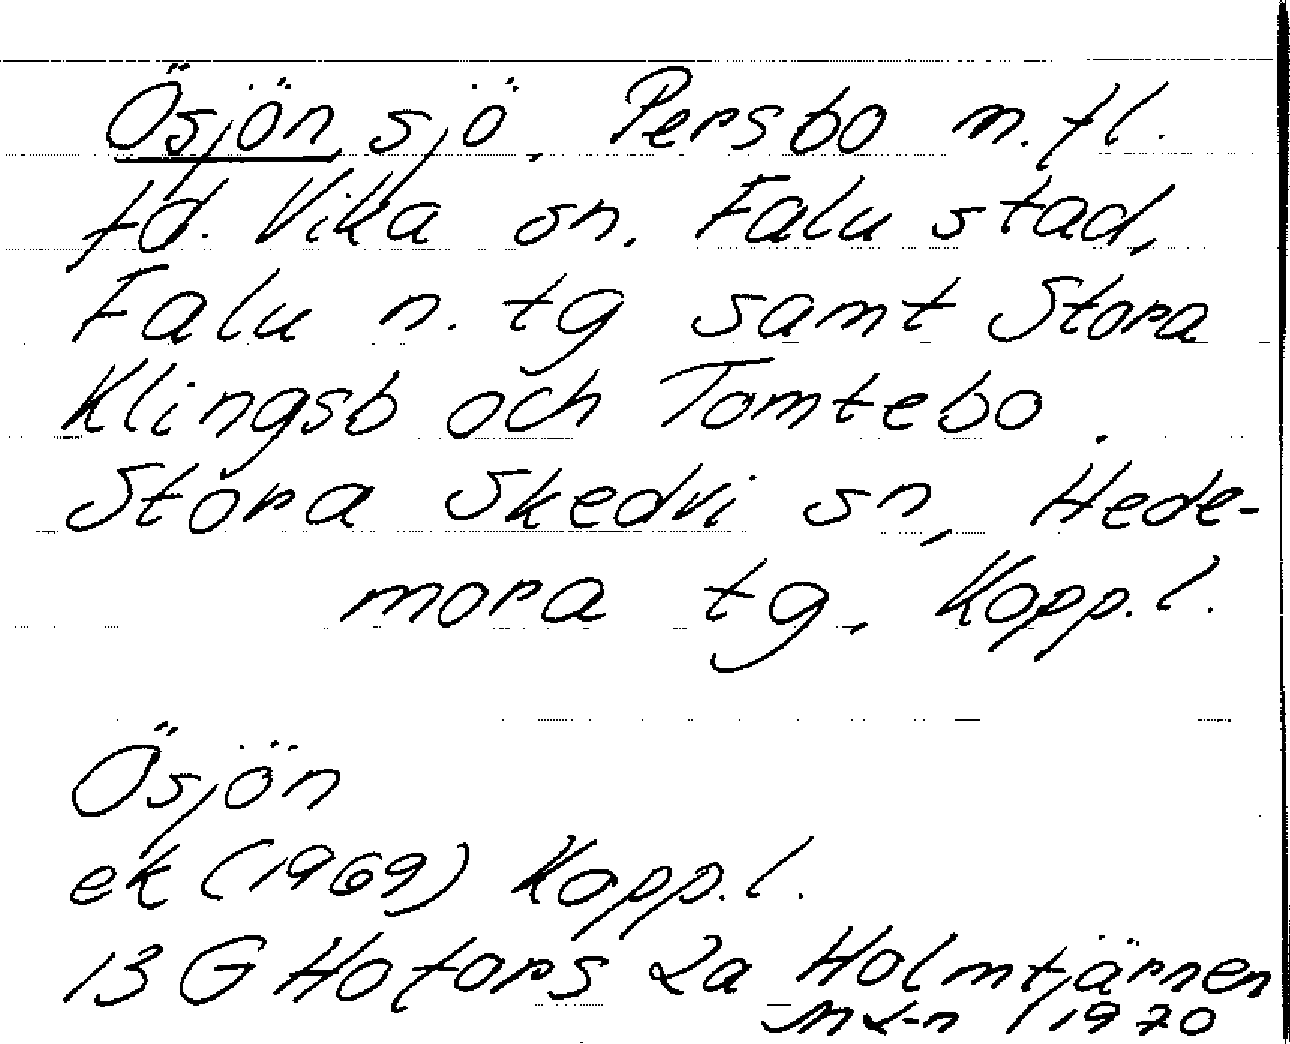 Ösjön, sjö, Persbo m.fl.
fd. Vika sn. Falu stad,
Falu n. tg samt Stora
Klingsb och Tomtebo.
Stora Skedvi sn, Hede-
mora tg, Kopp.l.
Ösjön
ek (1969) Kopp.l.
13 G Hofors 2a Holmtjärnen
1970